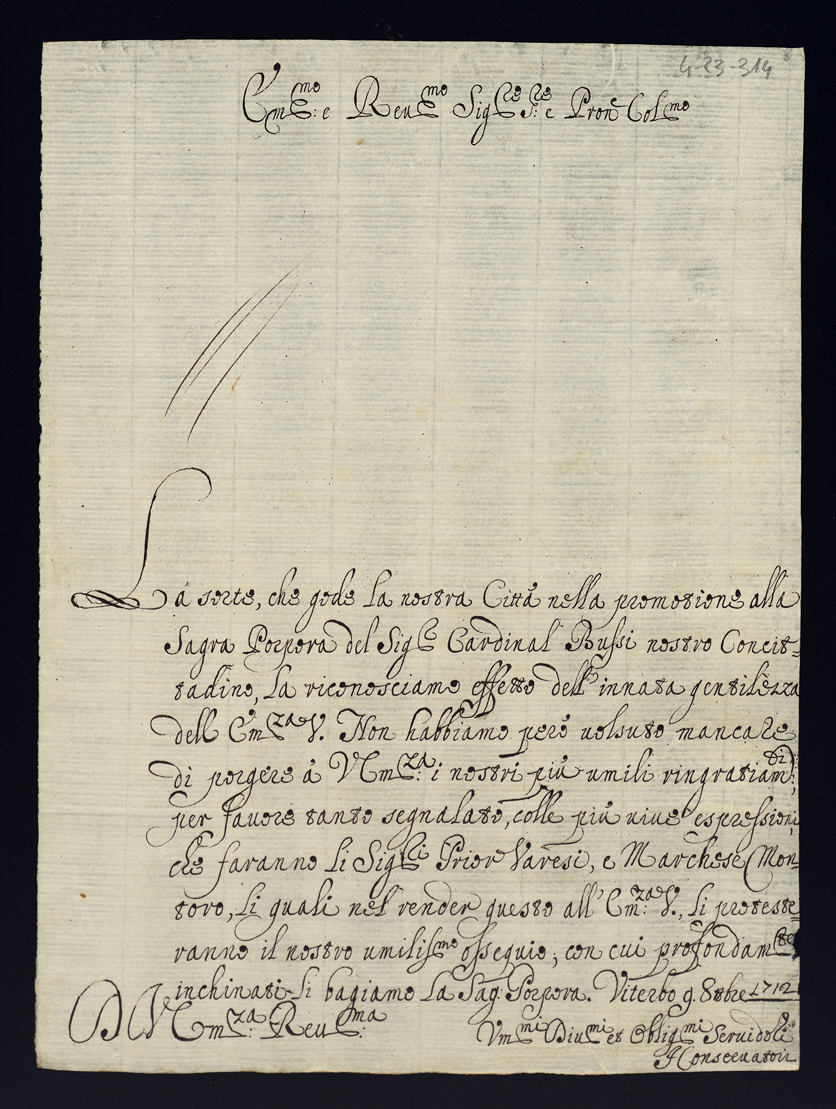 4-23-314
Em:mo e Reumo Sigre S:re e Pron Colmo
La sorte, che gode la nostra Città nella promotione alla
Sagra Porpora del Sigre Cardinal Bussi nostro Concit=
tadino, la riconosciamo effetto dell'innata gentilezza
dell Emza V. Non habbiamo però uolsuto mancare
di porgere à V Em:za i nostri più umili ringratiam:ti
per fauore tanto segnalato, colle più uiue espressioni
che faranno li Sigli Prior Varesi, e Marchese Mon=
toro, li quali nel render questo all'Em:za V., li proteste=
ranno il nostro umilismo ossequio; con cui profondamte
inchinati li bagiamo la Sag: Porpora. Viterbo 9. 8ttbre 1712
D V Em:za Reu:ma
Vmmi Diumi et Obligmi Seruidoli
I Conseruatori